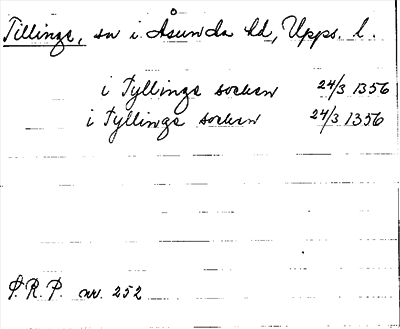 Tillinge, sn i Åsunda hd, Upps. l.
i Tyllinge sochen 24/3 1356
i Tyllinge sochen 24/3 1356
S.R.P. nr. 252